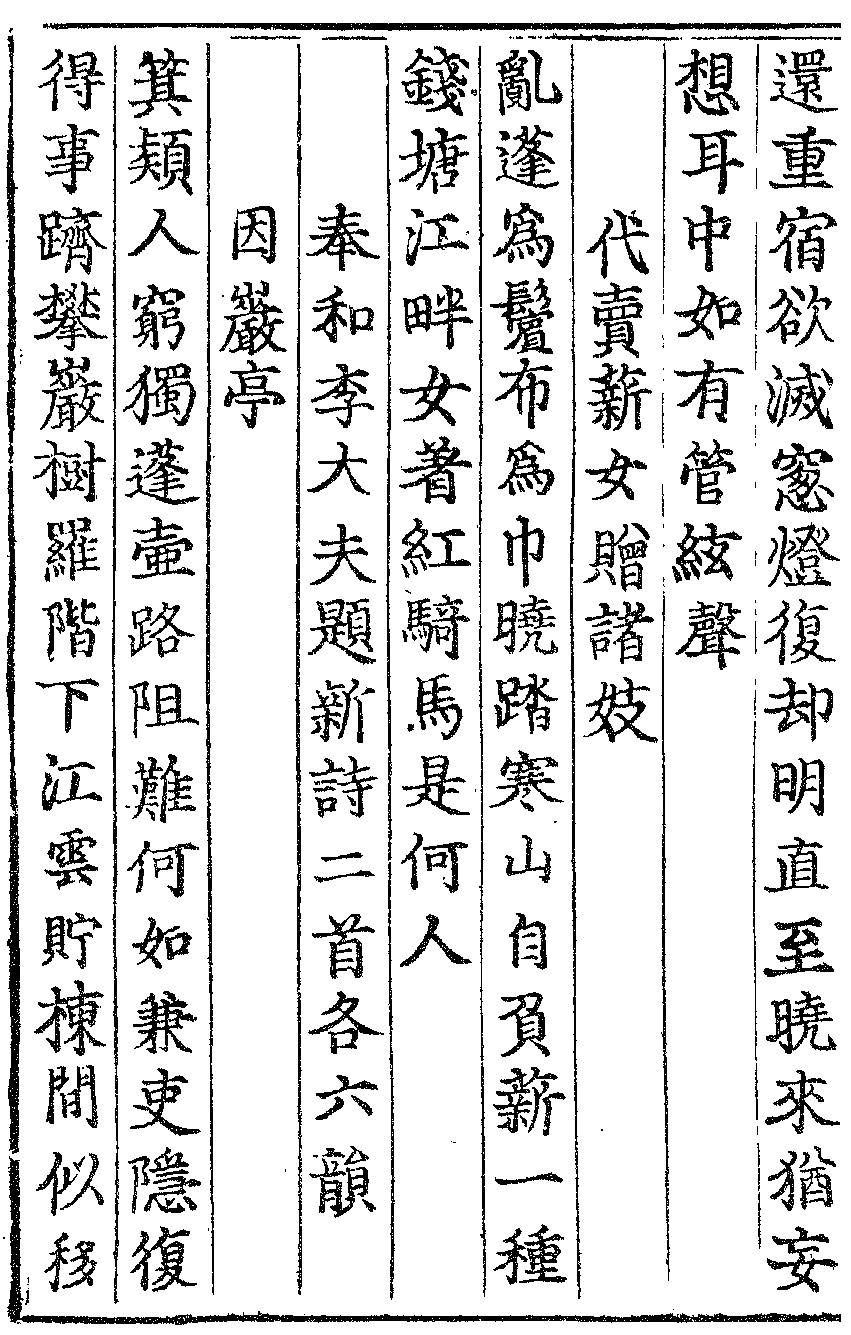 還重宿欲滅窓燈復却明直至曉來猶妄
想耳中如有管絃聲
代賣薪女贈諸妓
亂蓬爲鬢布爲巾曉踏寒山自負薪一種
錢塘江畔女著紅騎馬是何人
奉和李大夫題新詩二首各六韻
因巖亭
箕潁人窮獨蓬壷路阻難何如兼吏隱復
得事躋攀巖樹羅階下江雲貯棟間似移